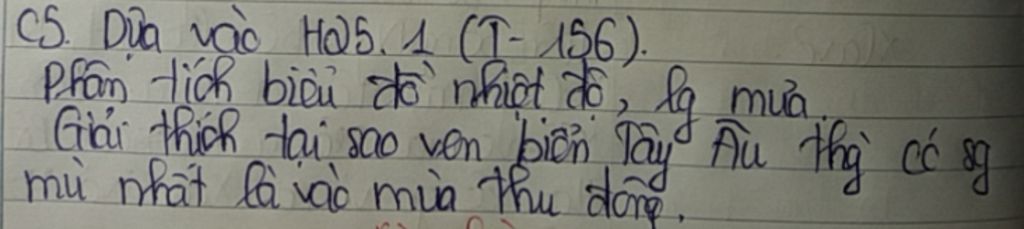 C5. Dựa vào H25.1 (T-156).
Phân tích biểu đồ nhiệt độ, lg mưa.
Giải thích tại sao ven biển Tây Âu thg có sg
mù nhất là vào mùa thu đông.